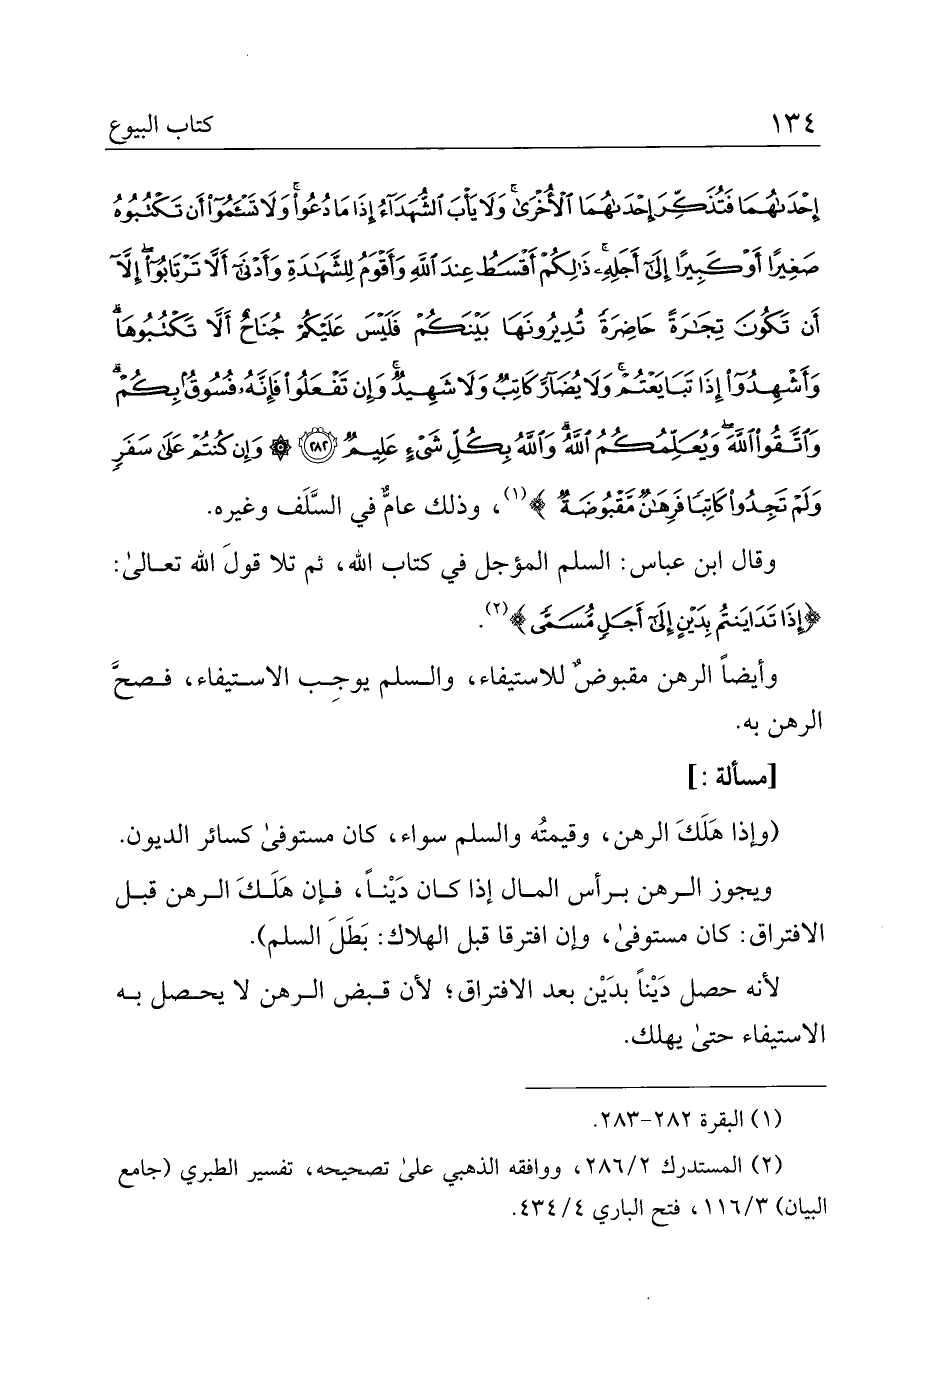 ١٣٤ كتاب البيوع
إِحْدَىٰهُمَا فَتُذَكِّرَ إِحْدَىٰهُمَا ٱلْأُخْرَىٰ ۚ وَلَا يَأْبَ ٱلشُّهَدَآءُ إِذَا مَا دُعُوا۟ ۚ وَلَا تَسْـَٔمُوٓا۟ أَن تَكْتُبُوهُ
صَغِيرًا أَوْ كَبِيرًا إِلَىٰٓ أَجَلِهِۦ ۚ ذَٰلِكُمْ أَقْسَطُ عِندَ ٱللَّهِ وَأَقْوَمُ لِلشَّهَٰدَةِ وَأَدْنَىٰٓ أَلَّا تَرْتَابُوٓا۟ ۖ إِلَّآ
أَن تَكُونَ تِجَٰرَةً حَاضِرَةً تُدِيرُونَهَا بَيْنَكُمْ فَلَيْسَ عَلَيْكُمْ جُنَاحٌ أَلَّا تَكْتُبُوهَا ۗ
وَأَشْهِدُوٓا۟ إِذَا تَبَايَعْتُمْ ۚ وَلَا يُضَآرَّ كَاتِبٌ وَلَا شَهِيدٌ ۚ وَإِن تَفْعَلُوا۟ فَإِنَّهُۥ فُسُوقٌۢ بِكُمْ ۗ
وَٱتَّقُوا۟ ٱللَّهَ ۖ وَيُعَلِّمُكُمُ ٱللَّهُ ۗ وَٱللَّهُ بِكُلِّ شَىْءٍ عَلِيمٌ ﴿٢٨٢﴾ ۞ وَإِن كُنتُمْ عَلَىٰ سَفَرٍ
وَلَمْ تَجِدُوا۟ كَاتِبًا فَرِهَٰنٌ مَّقْبُوضَةٌ ﴾(١)، وذلك عامٌّ في السَّلَف وغيره.
وقال ابن عباس: السلم المؤجل في كتاب الله، ثم تلا قولَ الله تعـالىٰ:
﴿إِذَا تَدَايَنتُم بِدَيْنٍ إِلَىٰٓ أَجَلٍ مُّسَمًّى ﴾(٢).
وأيضاً الرهن مقبوضٌ للاستيفاء، والـسلم يوجِـب الاسـتيفاء، فـصحَّ
الرهن به.
[مسألة :]
(وإذا هَلَكَ الرهن، وقيمتُه والسلم سواء، كان مستوفىٰ كسائر الديون.
ويجوز الـرهن بـرأس المـال إذا كـان دَيْنـاً، فـإن هَلَـكَ الـرهن قبـل
الافتراق: كان مستوفىٰ، وإن افترقا قبل الهلاك: بَطَلَ السلم).
لأنه حصل دَيْناً بدَيْن بعد الافتراق؛ لأن قـبض الـرهن لا يحـصل بـه
الاستيفاء حتىٰ يهلك.
(١) البقرة ٢٨٢-٢٨٣.
(٢) المستدرك ٢٨٦/٢، ووافقه الذهبي علىٰ تصحيحه، تفسير الطبري (جامع
البيان) ١١٦/٣، فتح الباري ٤٣٤/٤.